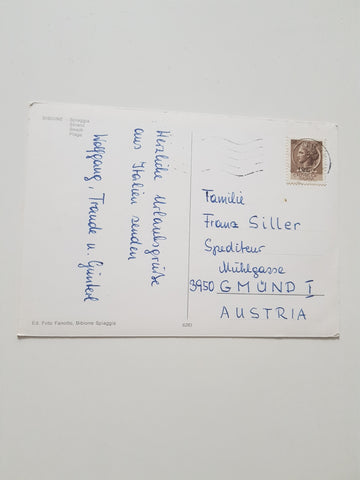 BIBIONE - Spiaggia
Strand
Beach
Plage
Herzliche Urlaubsgrüße
aus Italien senden
Wolfgang, Traude u. Günterl
Familie
Franz Siller
Spediteur
Mühlgasse
3950 GMÜND I
AUSTRIA
Ed. Foto Fanotto, Bibione Spiaggia